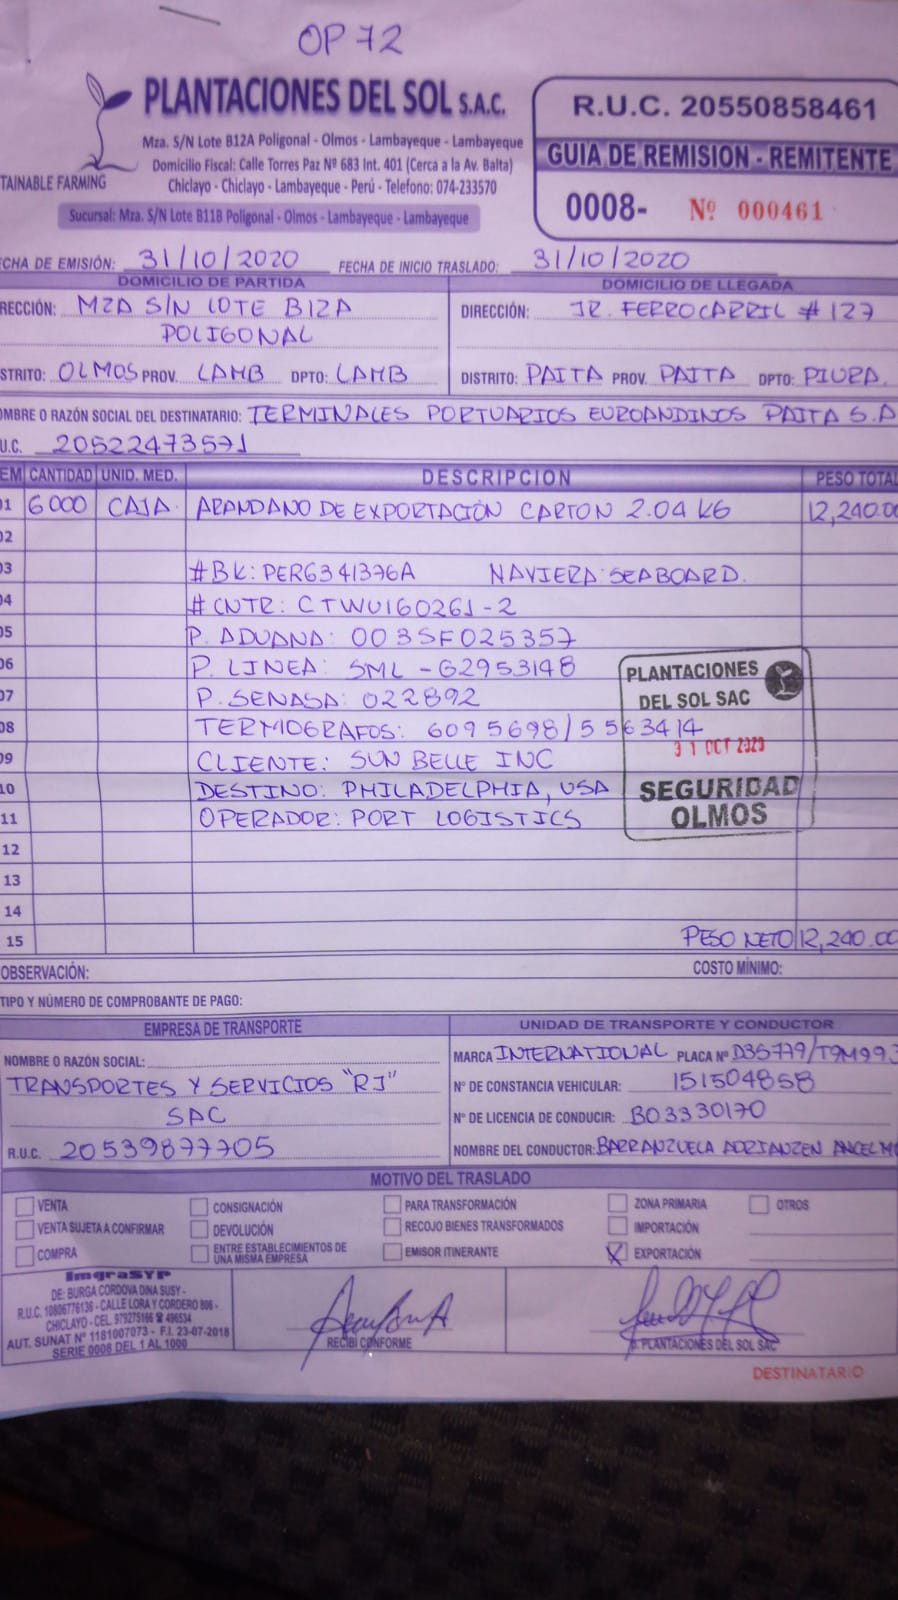 OP 72
PLANTACIONES DEL SOL S.A.C.
Mza. S/N Lote B12A Poligonal - Olmos - Lambayeque - Lambayeque
Domicilio Fiscal: Calle Torres Paz Nº 683 Int. 401 (Cerca a la Av. Balta)
Chiclayo - Chiclayo - Lambayeque - Perú - Telefono: 074-233570
TAINABLE FARMING
Sucursal: Mza. S/N Lote B11B Poligonal - Olmos - Lambayeque - Lambayeque
R.U.C. 20550858461
GUIA DE REMISION - REMITENTE
0008- Nº 000461
CHA DE EMISIÓN: 31/10/2020 FECHA DE INICIO TRASLADO: 31/10/2020
DOMICILIO DE PARTIDA DOMICILIO DE LLEGADA
RECCIÓN: MZA S/N LOTE B12A DIRECCIÓN: JR. FERROCARRIL # 127
POLIGONAL
STRITO: OLMOS PROV. LAMB DPTO: LAMB DISTRITO: PAITA PROV. PAITA DPTO: PIURA
OMBRE O RAZÓN SOCIAL DEL DESTINATARIO: TERMINALES PORTUARIOS EUROANDINOS PAITA S.A
U.C. 20522473571
EM CANTIDAD UNID. MED. DESCRIPCION PESO TOTAL
01 6000 CAJA ARANDANO DE EXPORTACIÓN CARTON 2.04 KG 12,240.00
02
03 #BK: PER6341376A NAVIERA: SEABOARD.
04 # CNTR: CTWU160261-2
05 P. ADUANA: 003SF025357
06 P. LINEA: SML - 62953148
07 P. SENASA: 022892
08 TERMOGRAFOS: 6095698/5563414
09 CLIENTE: SUN BELLE INC
10 DESTINO: PHILADELPHIA, USA
11 OPERADOR: PORT LOGISTICS
PLANTACIONES
DEL SOL SAC
31 OCT 2020
SEGURIDAD
OLMOS
12
13
14
15 PESO NETO 12,240.00
OBSERVACIÓN: COSTO MÍNIMO:
TIPO Y NÚMERO DE COMPROBANTE DE PAGO:
EMPRESA DE TRANSPORTE UNIDAD DE TRANSPORTE Y CONDUCTOR
NOMBRE O RAZÓN SOCIAL:
TRANSPORTES Y SERVICIOS "RJ"
SAC
R.U.C. 20539877705
MARCA INTERNATIONAL PLACA Nº D3S779/T9M993
Nº DE CONSTANCIA VEHICULAR: 151504858
Nº DE LICENCIA DE CONDUCIR: B03330170
NOMBRE DEL CONDUCTOR: BARRANZUELA ADRIANZEN ANCELMO
MOTIVO DEL TRASLADO
VENTA CONSIGNACIÓN PARA TRANSFORMACIÓN ZONA PRIMARIA OTROS
VENTA SUJETA A CONFIRMAR DEVOLUCIÓN RECOJO BIENES TRANSFORMADOS IMPORTACIÓN
COMPRA ENTRE ESTABLECIMIENTOS DE UNA MISMA EMPRESA EMISOR ITINERANTE X EXPORTACIÓN
ImgraSYP
DE: BURGA CORDOVA DINA SUSY -
R.U.C. 10806776136 - CALLE LORA Y CORDERO 806 -
CHICLAYO - CEL. 979275166 ☎ 496534
AUT. SUNAT Nº 1181007073 - F.I. 23-07-2018
SERIE 0008 DEL 1 AL 1000
RECIBÍ CONFORME
p. PLANTACIONES DEL SOL SAC
DESTINATARIO